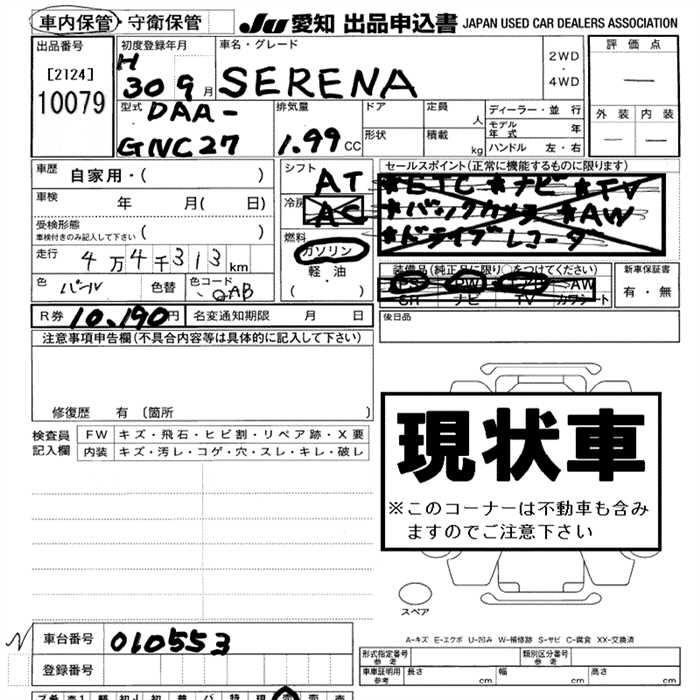 車内保管・守衛保管 JU 愛知 出品申込書 JAPAN USED CAR DEALERS ASSOCIATION
出品番号 初度登録年月 車名・グレード 評価点
[2124] H 30 9月 SERENA 2WD ・ 4WD —
10079 型式 排気量 ドア 定員 人 ディーラー・並行 外装 内装
DAA- モデル年式 年 — —
GNC27 1.99 CC 形状 積載 kg ハンドル 左・右
車歴 自家用・( ) シフト AT セールスポイント(正常に機能するものに限ります)
車検 年 月( 日) 冷房 AC *ETC *ナビ *TV
受検形態 *バックカメラ *AW
車検付きのみ記入して下さい ( ) 燃料 *ドライブレコーダ
走行 4万4千313km ガソリン
軽・油
・( )
装備品(純正品に限り○をつけてください) 新車保証書
PS PW エアB AW 有・無
SR ナビ TV カワシート
色 パール 色替 色コード QAB
R券 10,190円 名変通知期限 月 日 後日品
注意事項申告欄(不具合内容等は具体的に記入して下さい)
修復歴 有 〔箇所 〕
検査員記入欄 FW キズ・飛石・ヒビ割・リペア跡・X要
内装 キズ・汚レ・コゲ・穴・スレ・キレ・破レ
現状車
※このコーナーは不動車も含み
ますのでご注意下さい
スペア
A-キズ E-エクボ U-凹み W-補修跡 S-サビ C-腐食 XX-交換済
N 車台番号 010553
登録番号
形式指定番号 参考 類別区分番号 参考
車庫証明用 参考 長さ cm 幅 cm 高さ cm